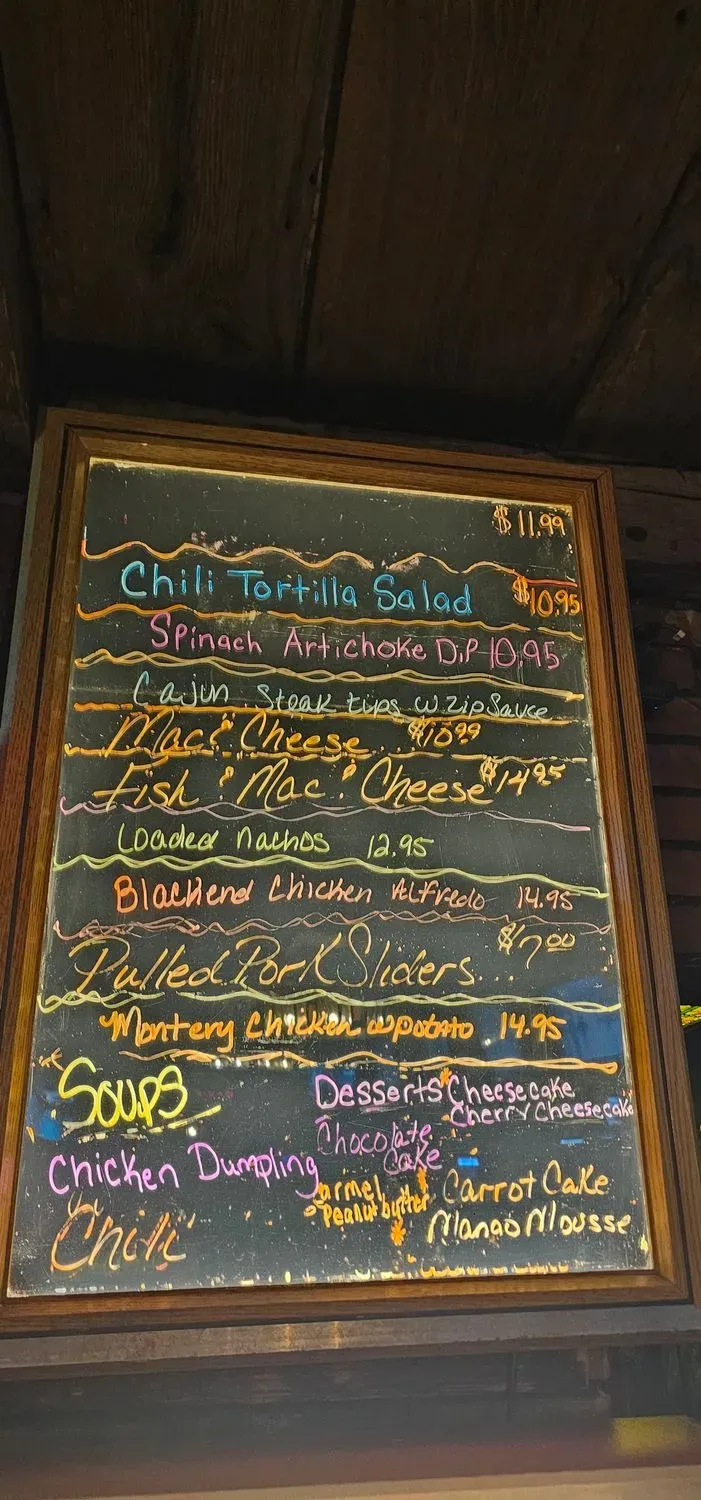 $11.99
Chili Tortilla Salad $10.95
Spinach Artichoke Dip 10.95
Cajun Steak tips w Zip Sauce
Mac & Cheese... $10.99
Fish & Mac & Cheese $14.95
Loaded nachos 12.95
Blackend Chicken Alfredo 14.95
Pulled Pork Sliders... $7.00
Montery Chicken w potato 14.95
Soups
Chicken Dumpling
Chili
Desserts
Cheesecake
Cherry Cheesecake
Chocolate
Cake
Carmel
Peanutbutter
Carrot Cake
Mango Mousse